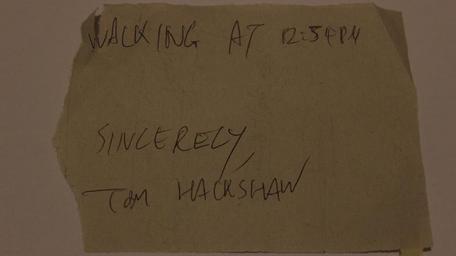 WALKING AT 12:54PM
SINCERELY,
TOM HACKSHAW